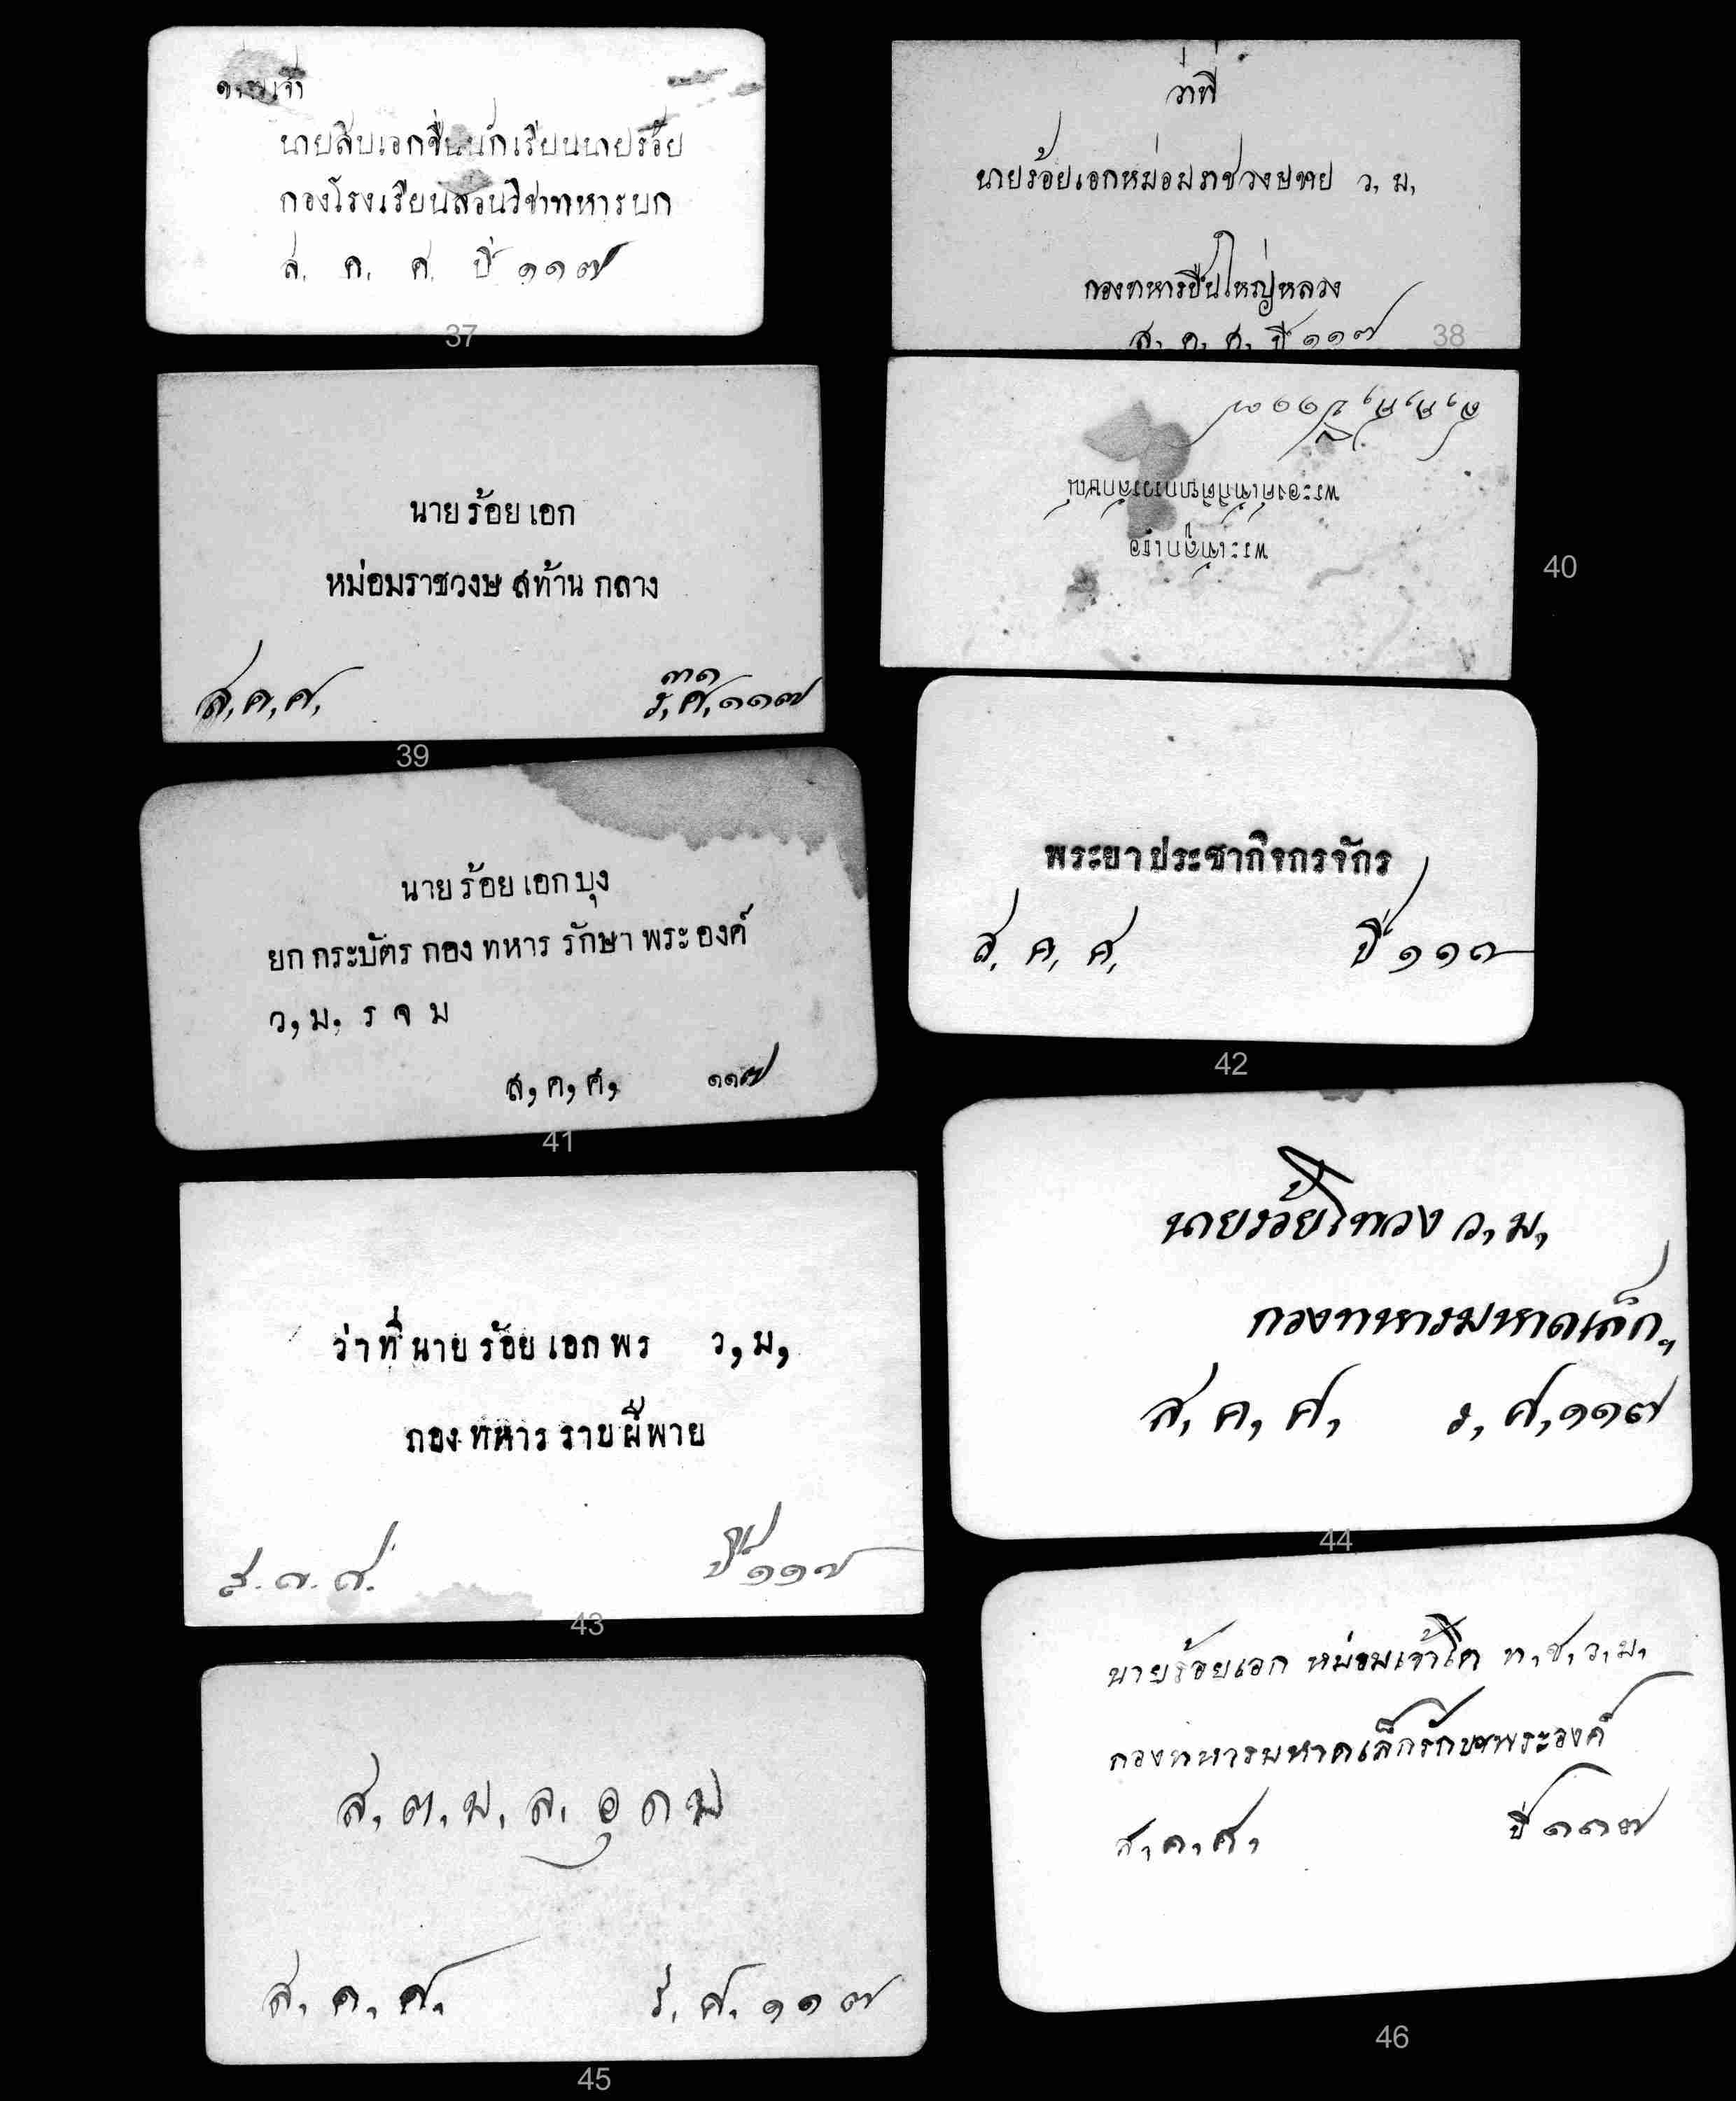 นายสิบเอกชื่นนักเรียนนายร้อย
กองโรงเรียนสอนวิชาทหารบก
ส. ค. ศ. ปี ๑๑๗
37
ว่าที่
นายร้อยเอกหม่อมราชวงษ ว, ม,
กองทหารปืนใหญ่หลวง
ส. ค. ศ. ปี ๑๑๗
38
นาย ร้อย เอก
หม่อมราชวงษ สท้าน กลาง
ส, ค, ศ,
๓๑
ร, ศ, ๑๑๗
39
พระเจ้าลูกเธอ
ส, ค, ศ, ปี ๑๑๗
40
นาย ร้อย เอก บุง
ยก กระบัตร กอง ทหาร รักษา พระ องค์
ว, ม, ร จ ม
ส, ค, ศ, ๑๑๗
41
พระยา ประชากิจกรจักร
ส. ค, ศ, ปี ๑๑๗
42
ว่า ที่ นาย ร้อย เอก พร ว, ม,
กอง ทหาร ราบ ฝีพาย
ส. ค. ศ. ปี ๑๑๗
43
นายร้อยโทวง ว, ม,
กองทหารมหาดเล็ก,
ส, ค, ศ, ร, ศ, ๑๑๗
44
ส, ต, ม, ล, อุดม
ส, ค, ศ, ร, ศ, ๑๑๗
45
นายร้อยเอก หม่อมเจ้าโต ท, ช, ว, ม,
กองทหารมหาดเล็กรักษาพระองค์
ส, ค, ศ, ปี ๑๑๗
46